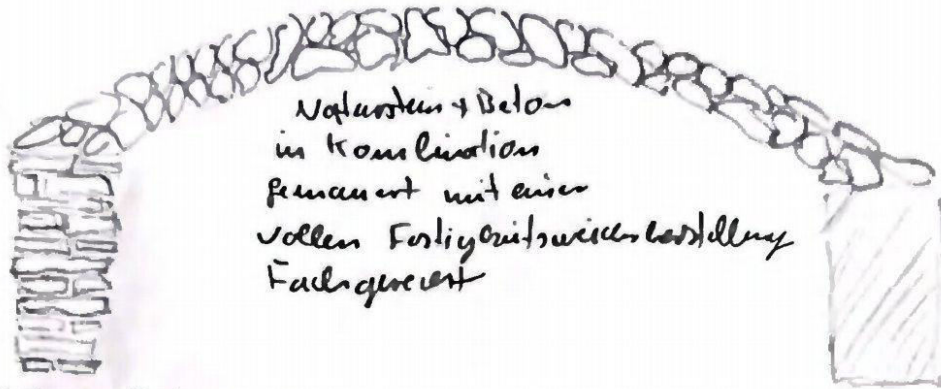 Naturstein + Beton
in Kombination
gemauert mit einer
vollen Festigkeitswiederherstellung
Fachgerecht